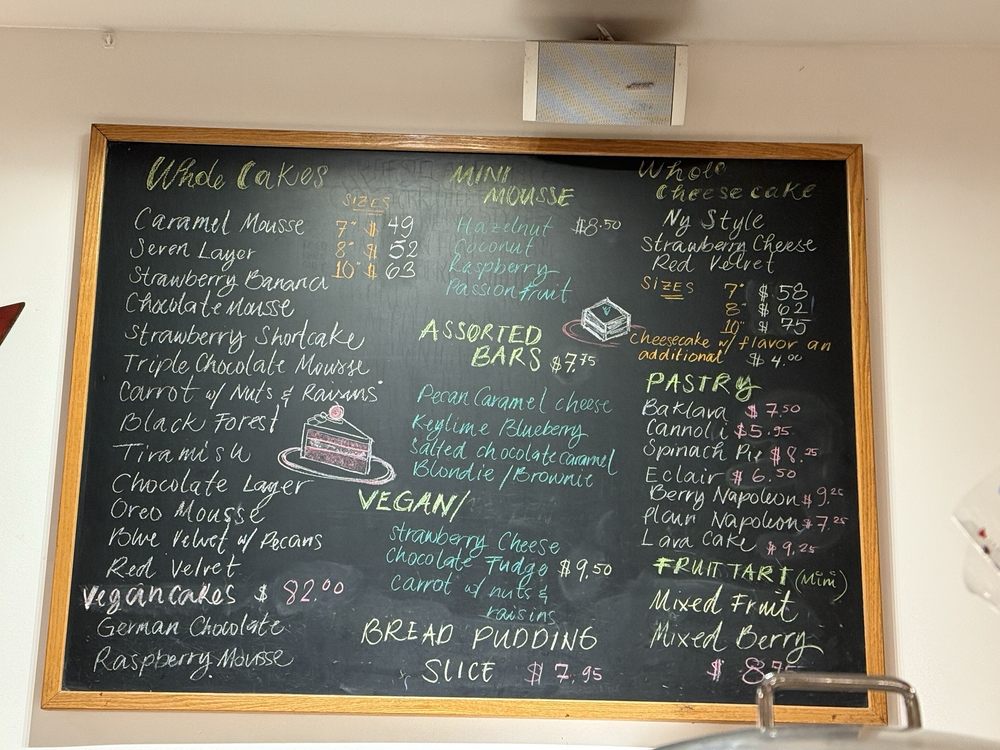 Whole Cakes
SIZES
Caramel Mousse 7" $ 49
Seven Layer 8" $ 52
Strawberry Banana 10" $ 63
Chocolate Mousse
Strawberry Shortcake
Triple Chocolate Mousse
Carrot w/ Nuts & Raisins
Black Forest
Tiramisu
Chocolate Layer
Oreo Mousse
Blue Velvet w/ Pecans
Red Velvet
Vegan cakes $ 82.00
German Chocolate
Raspberry Mousse
MINI
MOUSSE
Hazelnut $8.50
Coconut
Raspberry
Passion fruit
ASSORTED
BARS $7.75
Pecan Caramel cheese
Keylime Blueberry
Salted chocolate caramel
Blondie / Brownie
VEGAN/
Strawberry Cheese
Chocolate Fudge $9.50
Carrot w/ nuts &
raisins
BREAD PUDDING
SLICE $ 7.95
Whole
Cheese cake
Ny Style
Strawberry Cheese
Red Velvet
SIZES 7" $ 58
8" $ 62
10" $ 75
Cheesecake w/ flavor an
additional $ 4.00
PASTRY
Baklava $ 7.50
Cannoli $5.95
Spinach Pie $8.25
Eclair $ 6.50
Berry Napoleon $9.25
Plain Napoleon $7.25
Lava Cake $9.25
FRUIT TART (Mini)
Mixed Fruit
Mixed Berry
$ 8.75